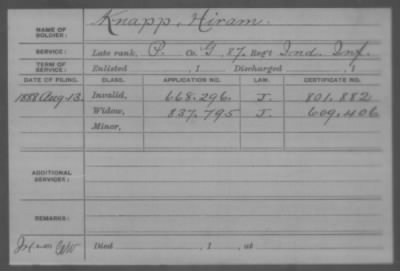 NAME OF SOLDIER: Knapp, Hiram.
SERVICE: Late rank, P. Co. G, 87. Reg't Ind. Inf.
TERM OF SERVICE: Enlisted , 1 Discharged , 1
DATE OF FILING. CLASS. APPLICATION NO. LAW. CERTIFICATE NO.
1888 Aug. 13. Invalid, 668.296. J. 801.882
Widow, 837.795 J. 609.406
Minor,
ADDITIONAL SERVICES:
REMARKS:
Died , 1 , at